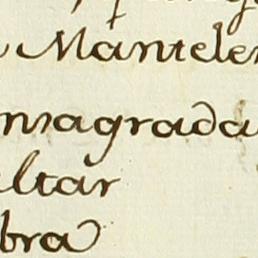 Mantele
nsagrada
ltar
bra